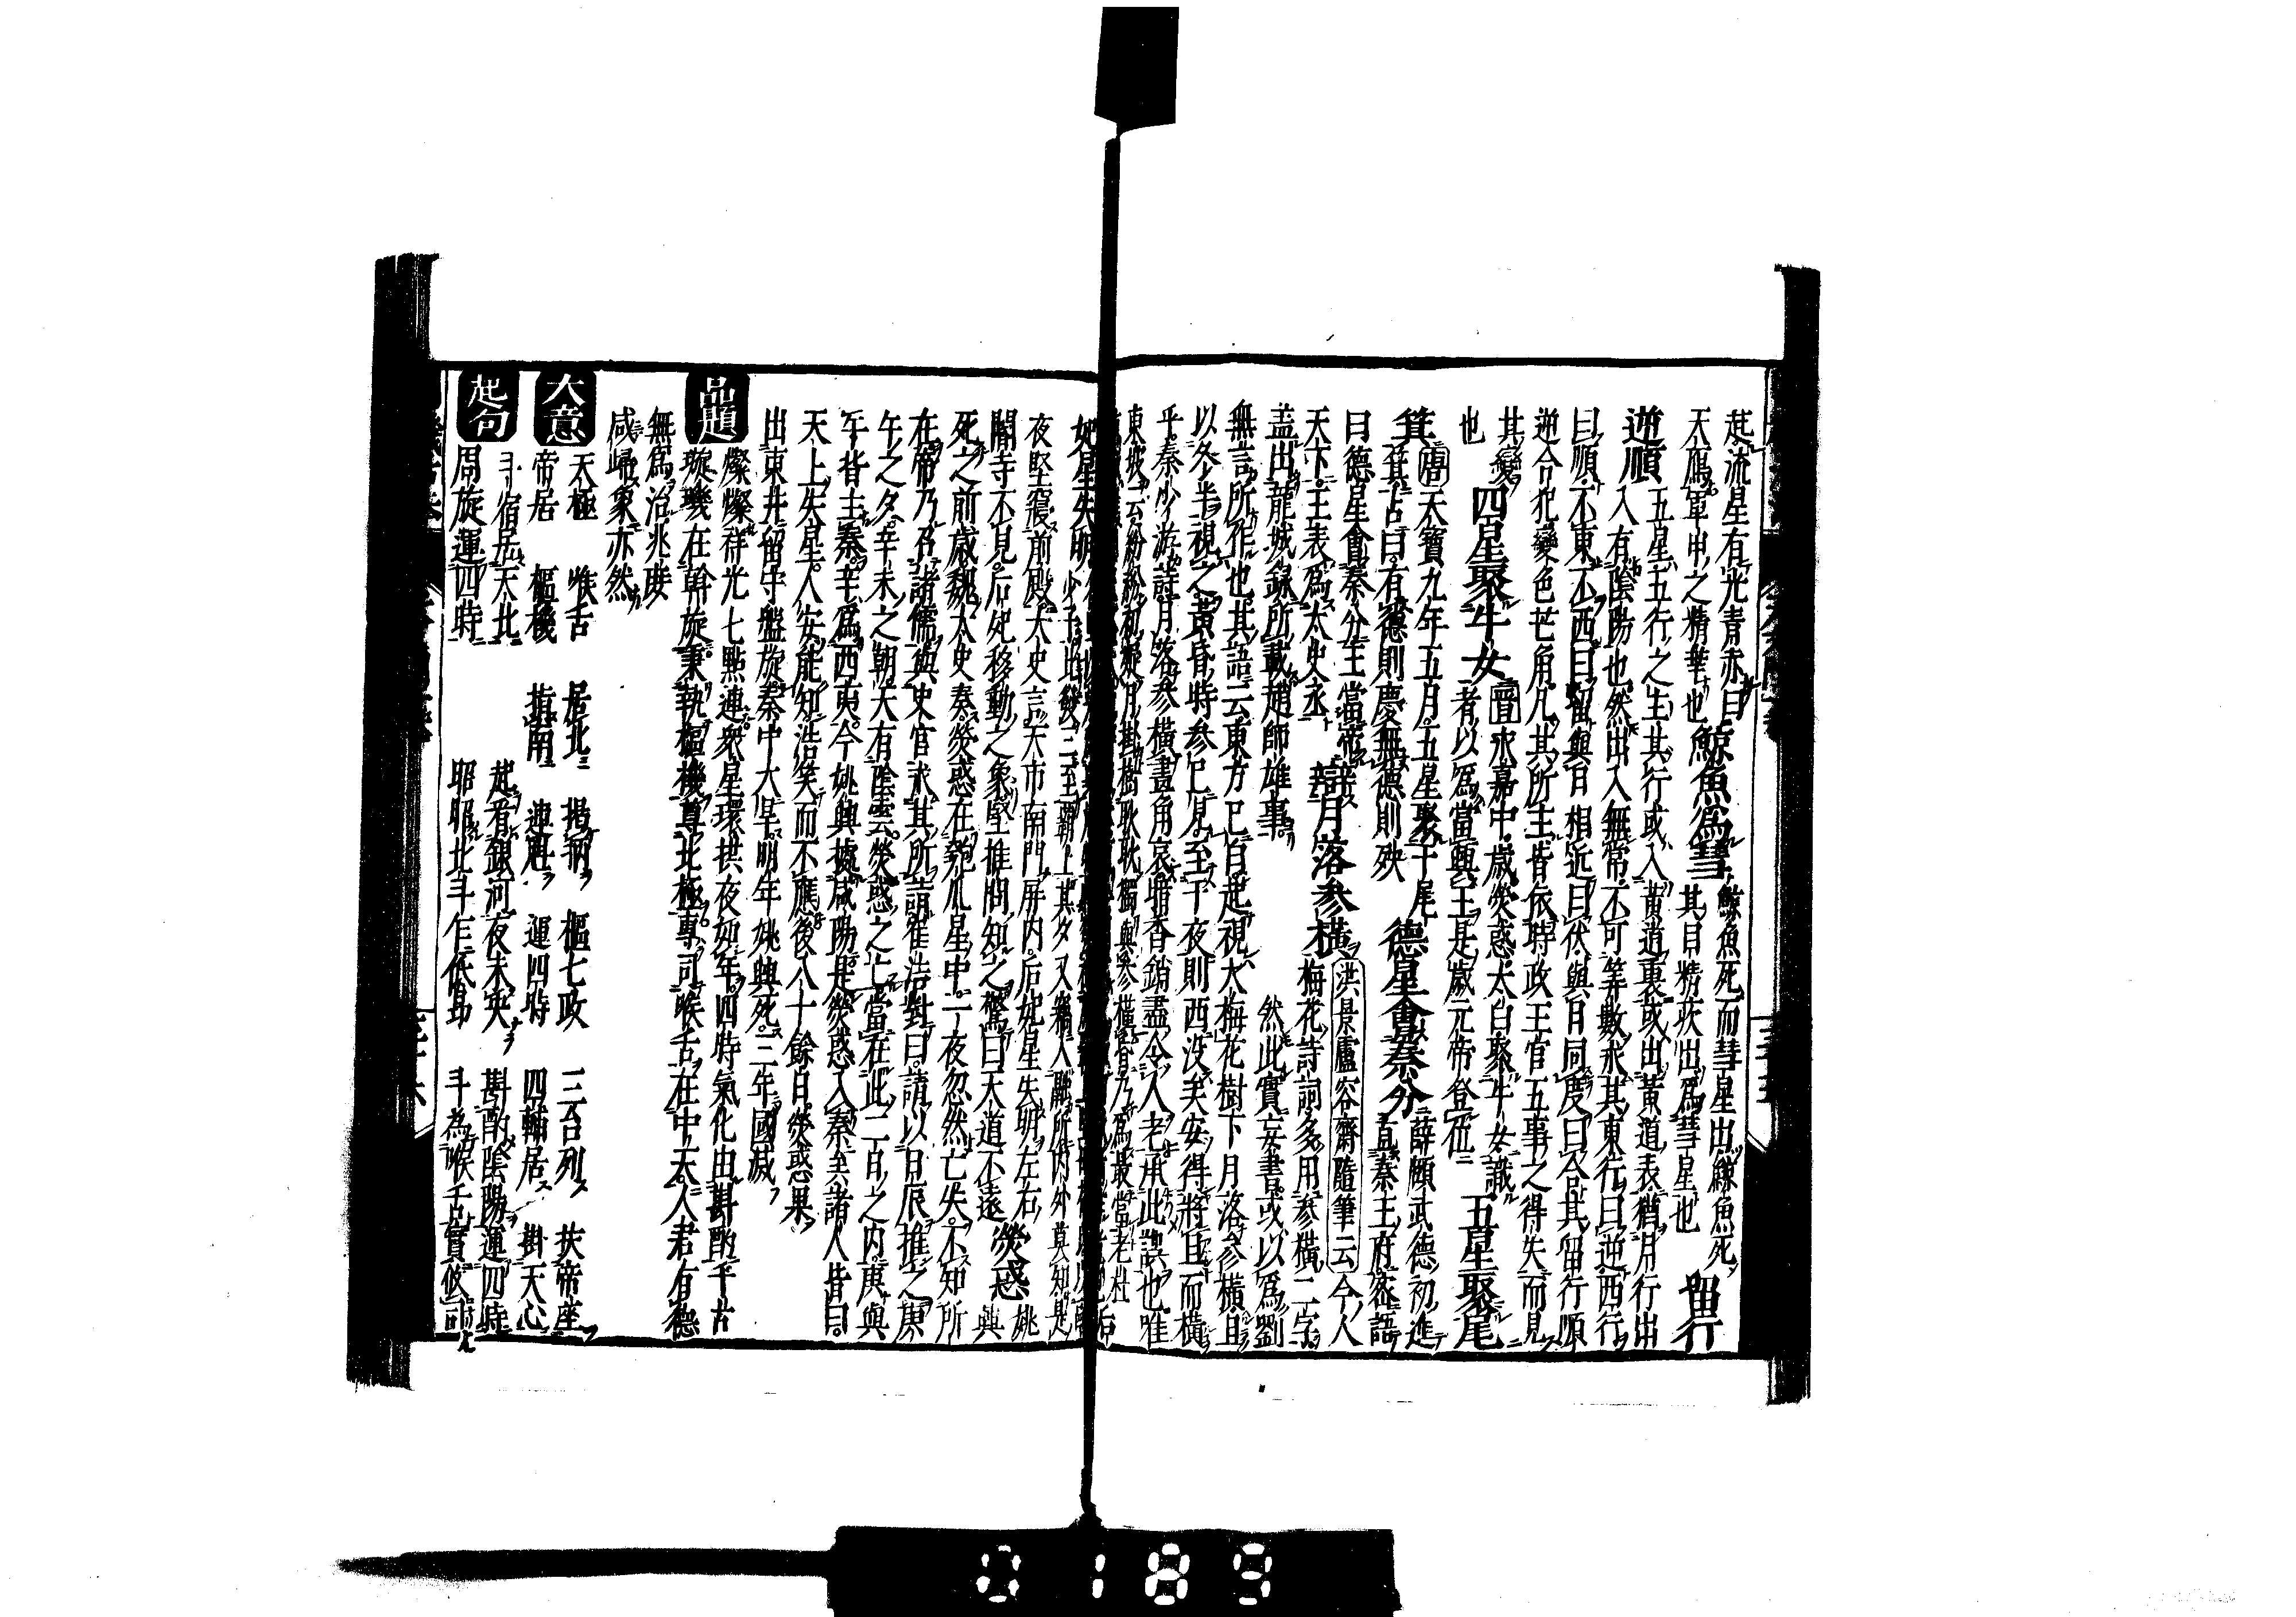 起流星有光青赤曰
天鴈軍中之精華也 鯨魚為彗 鯨魚死而彗星出鯨魚死
其目精疾出為彗星也 留行
逆順 五星五行之主其行或入黃道裏或出黃道表猶月行出
入有陰陽也然出入無常不可等數求其東行曰逆西行
曰順不東不西曰留與日相近曰伏與日同度曰合其留行順
逆合犯變色芒角凡其所主皆依時政王官五事之得失而見
其變 四星聚牛女 晉永嘉中歲熒惑太白聚牛女識
也 者以為當興王是歲元帝登位 五星聚尾
箕 唐天寶九年五月五星聚于尾 德星會秦分 薛頤武德初進
箕占曰有德則慶無德則殃 直秦王府密語
曰德星會秦分王當帝 辯月落參橫 洪景盧容齋隨筆云今人
天下王表為太史丞 梅花詩詞多用參橫二字
蓋出龍城録所載趙師雄事 然此實妄書或以為劉
無言所作也其語云東方已白起視大梅花樹下月落參橫且
以冬半視之黃昏時參已見至千夜則西没矣安得將旦而橫
乎秦少游詩月落參橫畫角哀暗香銷盡令人老承此誤也唯
東坡云紛紛初疑月掛樹耿耿獨與參橫昏乃為最當老杜
妃星失明
夜堅寢前殿太史言天市南門屏内后妃星失明左右
閣寺不見后妃移動之象堅推問知之驚曰天道不遠 熒惑 姚興
死之前歲魏太史奏熒惑在匏瓜星中一夜忽然亡失不知所
在帝乃召諸儒與史官求其所詣崔浩對曰請以日辰推之庚
午之夕辛未之朝天有陰雲熒惑之亡當在此二日之内庚與
午皆主秦辛為西夷今姚興據咸陽是熒惑入秦矣諸人皆曰
天上失星人安能知浩笑而不應後八十餘日熒惑果
出東井留守盤旋秦中大旱明年姚興死三年國滅
品題 燦燦祥光七點連衆星環拱夜如年四時氣化由斟酌千古
璇璣在幹旋秉執樞機尊北極專司喉舌在中天人君有德
無為治兆庶
咸歸象亦然
大意 天極 喉舌 居北 揭柄 樞七政 三台列 扶帝座
帝居 樞機 指南 連魁 運四時 四輔居 掛天心
起句 斗宿居天北 起看銀河夜未央 斟酌陰陽運四時
周旋運四時 昭昭北斗乍低昂 斗為喉舌實攸司
0189